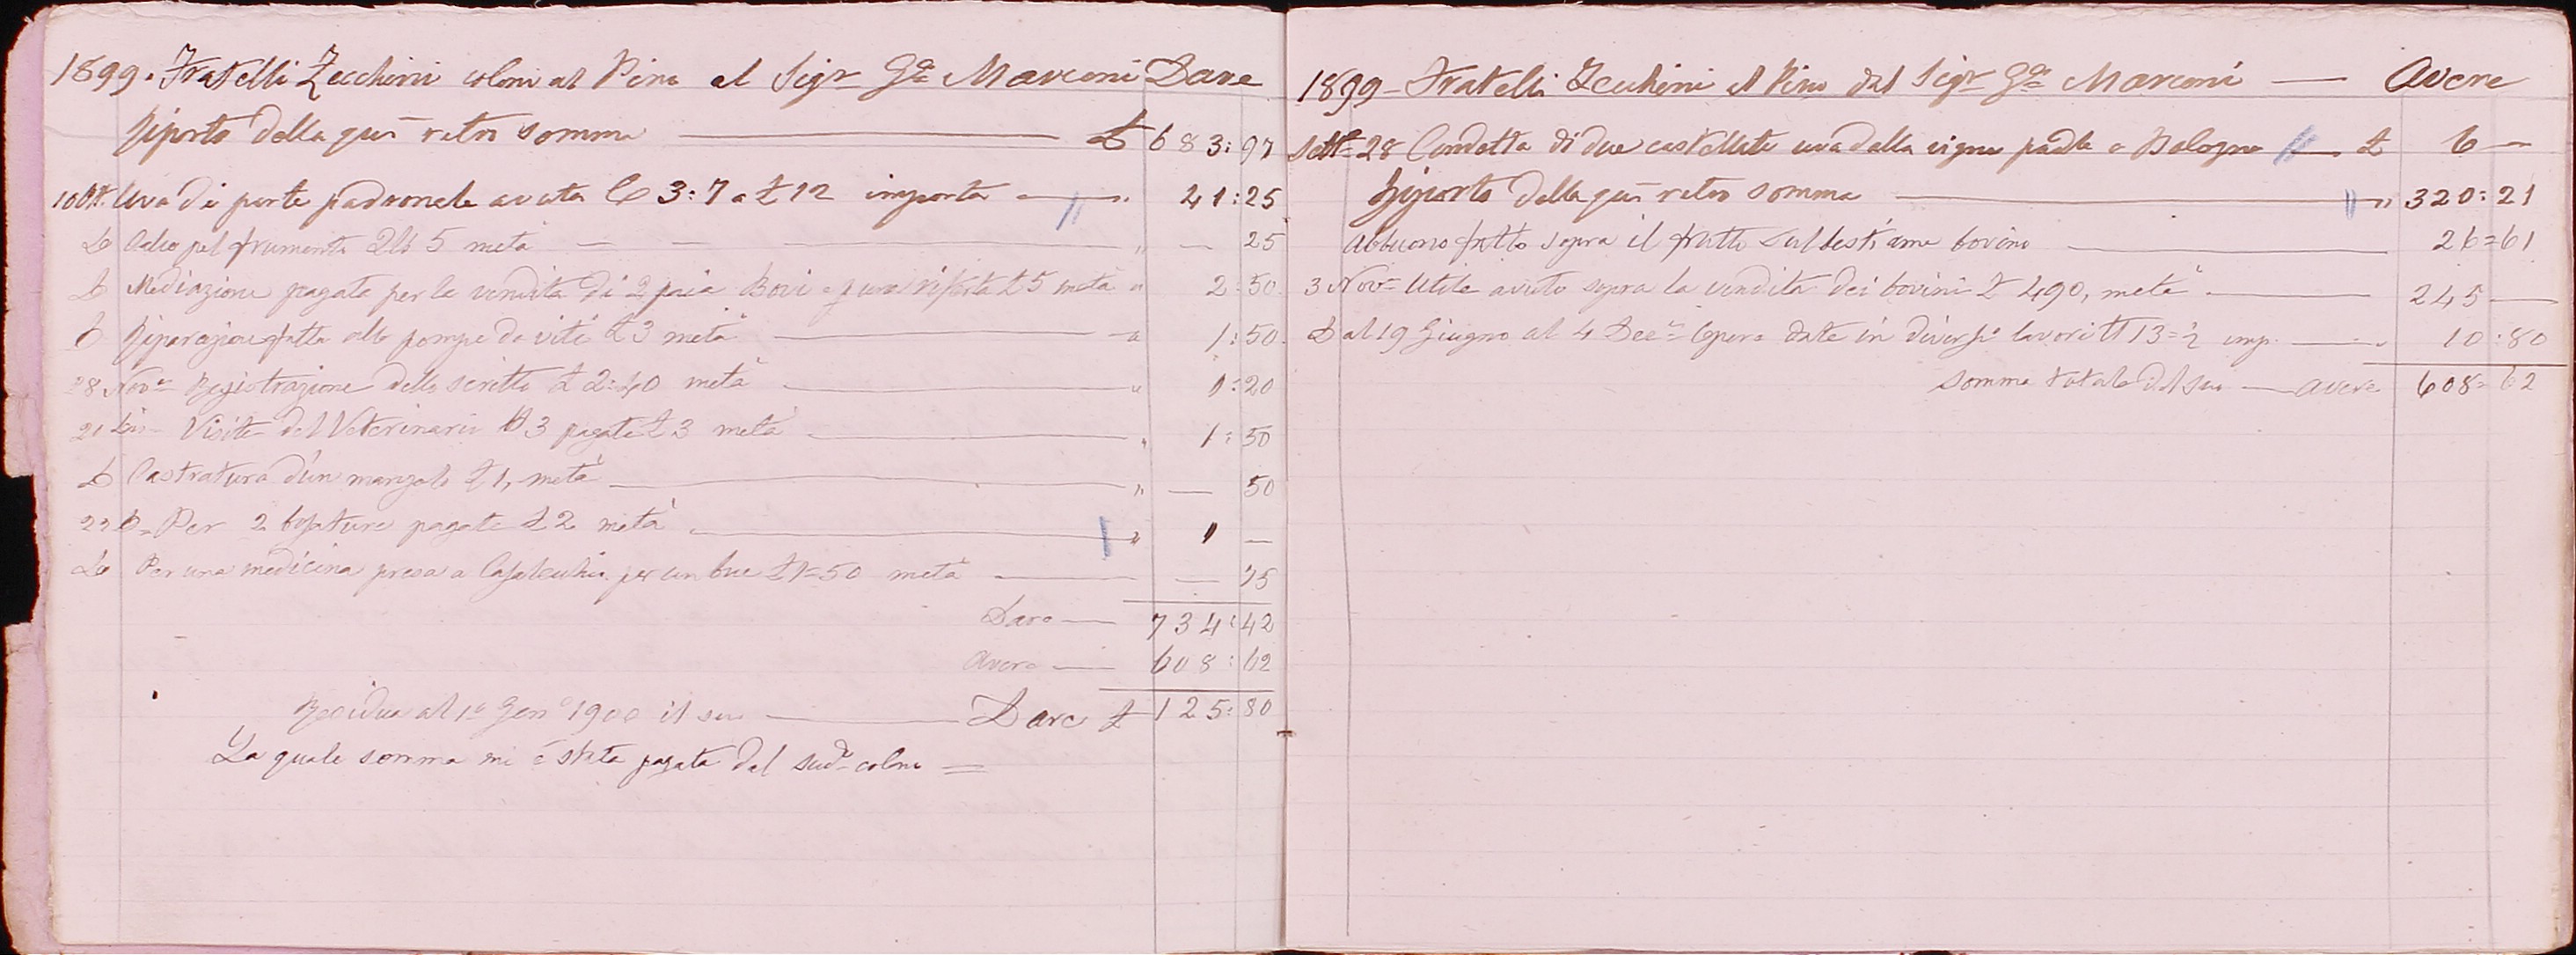 1899. Fratelli Zecchini coloni al Pino al Sigr Gne Marconi Dare
Riporto della qui retro somma £ 683:97
10 Ott. Uva di parte padronale avuta C 3:7 a £ 12 importa " 41:25
Do Calce pel frumento Qli 5 metà " — 25
Do Mediazione pagata per la vendita di 2 paia Bovi £ 5 metà " 2:50
Do Riparazione fatta alle pompe da viti £ 3 metà " 1:50
28 Nove Registrazione della scritta £ 2:40 metà " 1:20
21 Visite del Veterinario N 3 pagate £ 3 metà " 1:50
Do Castratura d'un manzolo £ 1, metà " — 50
22 Do Per 2 pagate £ 2 metà " 1 —
Do Per una medicina presa a Casalecchio per un bue £ 1=50 metà — 75
Dare — 734:42
Avere — 608:62
Residua al 1o Geno 1900 il suo — Dare £ 125:80
La quale somma mi è stata pagata dal sudo colono =
1899 - Fratelli Zecchini al Pino dal Sigr Gne Marconi — Avere
Sette 28 Condotta di due castellate uva della vigna padle a Bologna £ 6 —
Riporto della qui retro somma " 320:21
Abbuono fatto sopra il frutto sul bestiame bovino 26=61
3 Nove Utile avuto sopra la vendita dei bovini £ 490, metà 245 —
Dal 19 Giugno al 4 Dece Opere date in diversi lavori N 13=½ imp. " 10:80
Somma totale del suo — avere 608=62